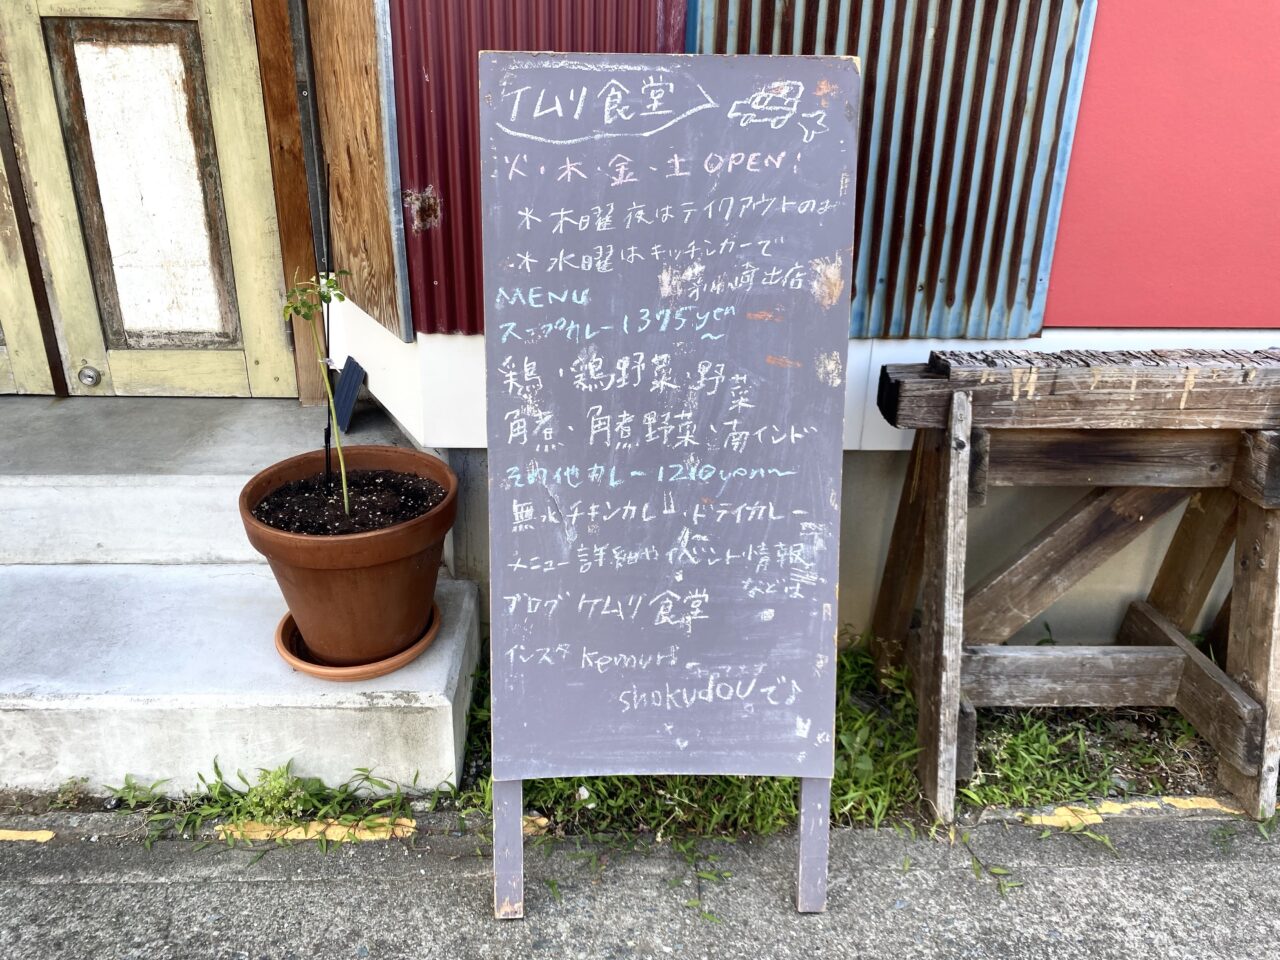 ケムリ食堂
火・木・金・土 OPEN!
※木曜夜はテイクアウトのみ
※水曜はキッチンカーで
出店
MENU
スープカレー 1375yen〜
鶏・鶏野菜・野菜
角煮・角煮野菜・南インド
その他カレー 1210yen〜
無水チキンカレー・ドライカレー
メニュー詳細やイベント情報
などは
ブログ ケムリ食堂
インスタ kemuri_
shokudouで♪